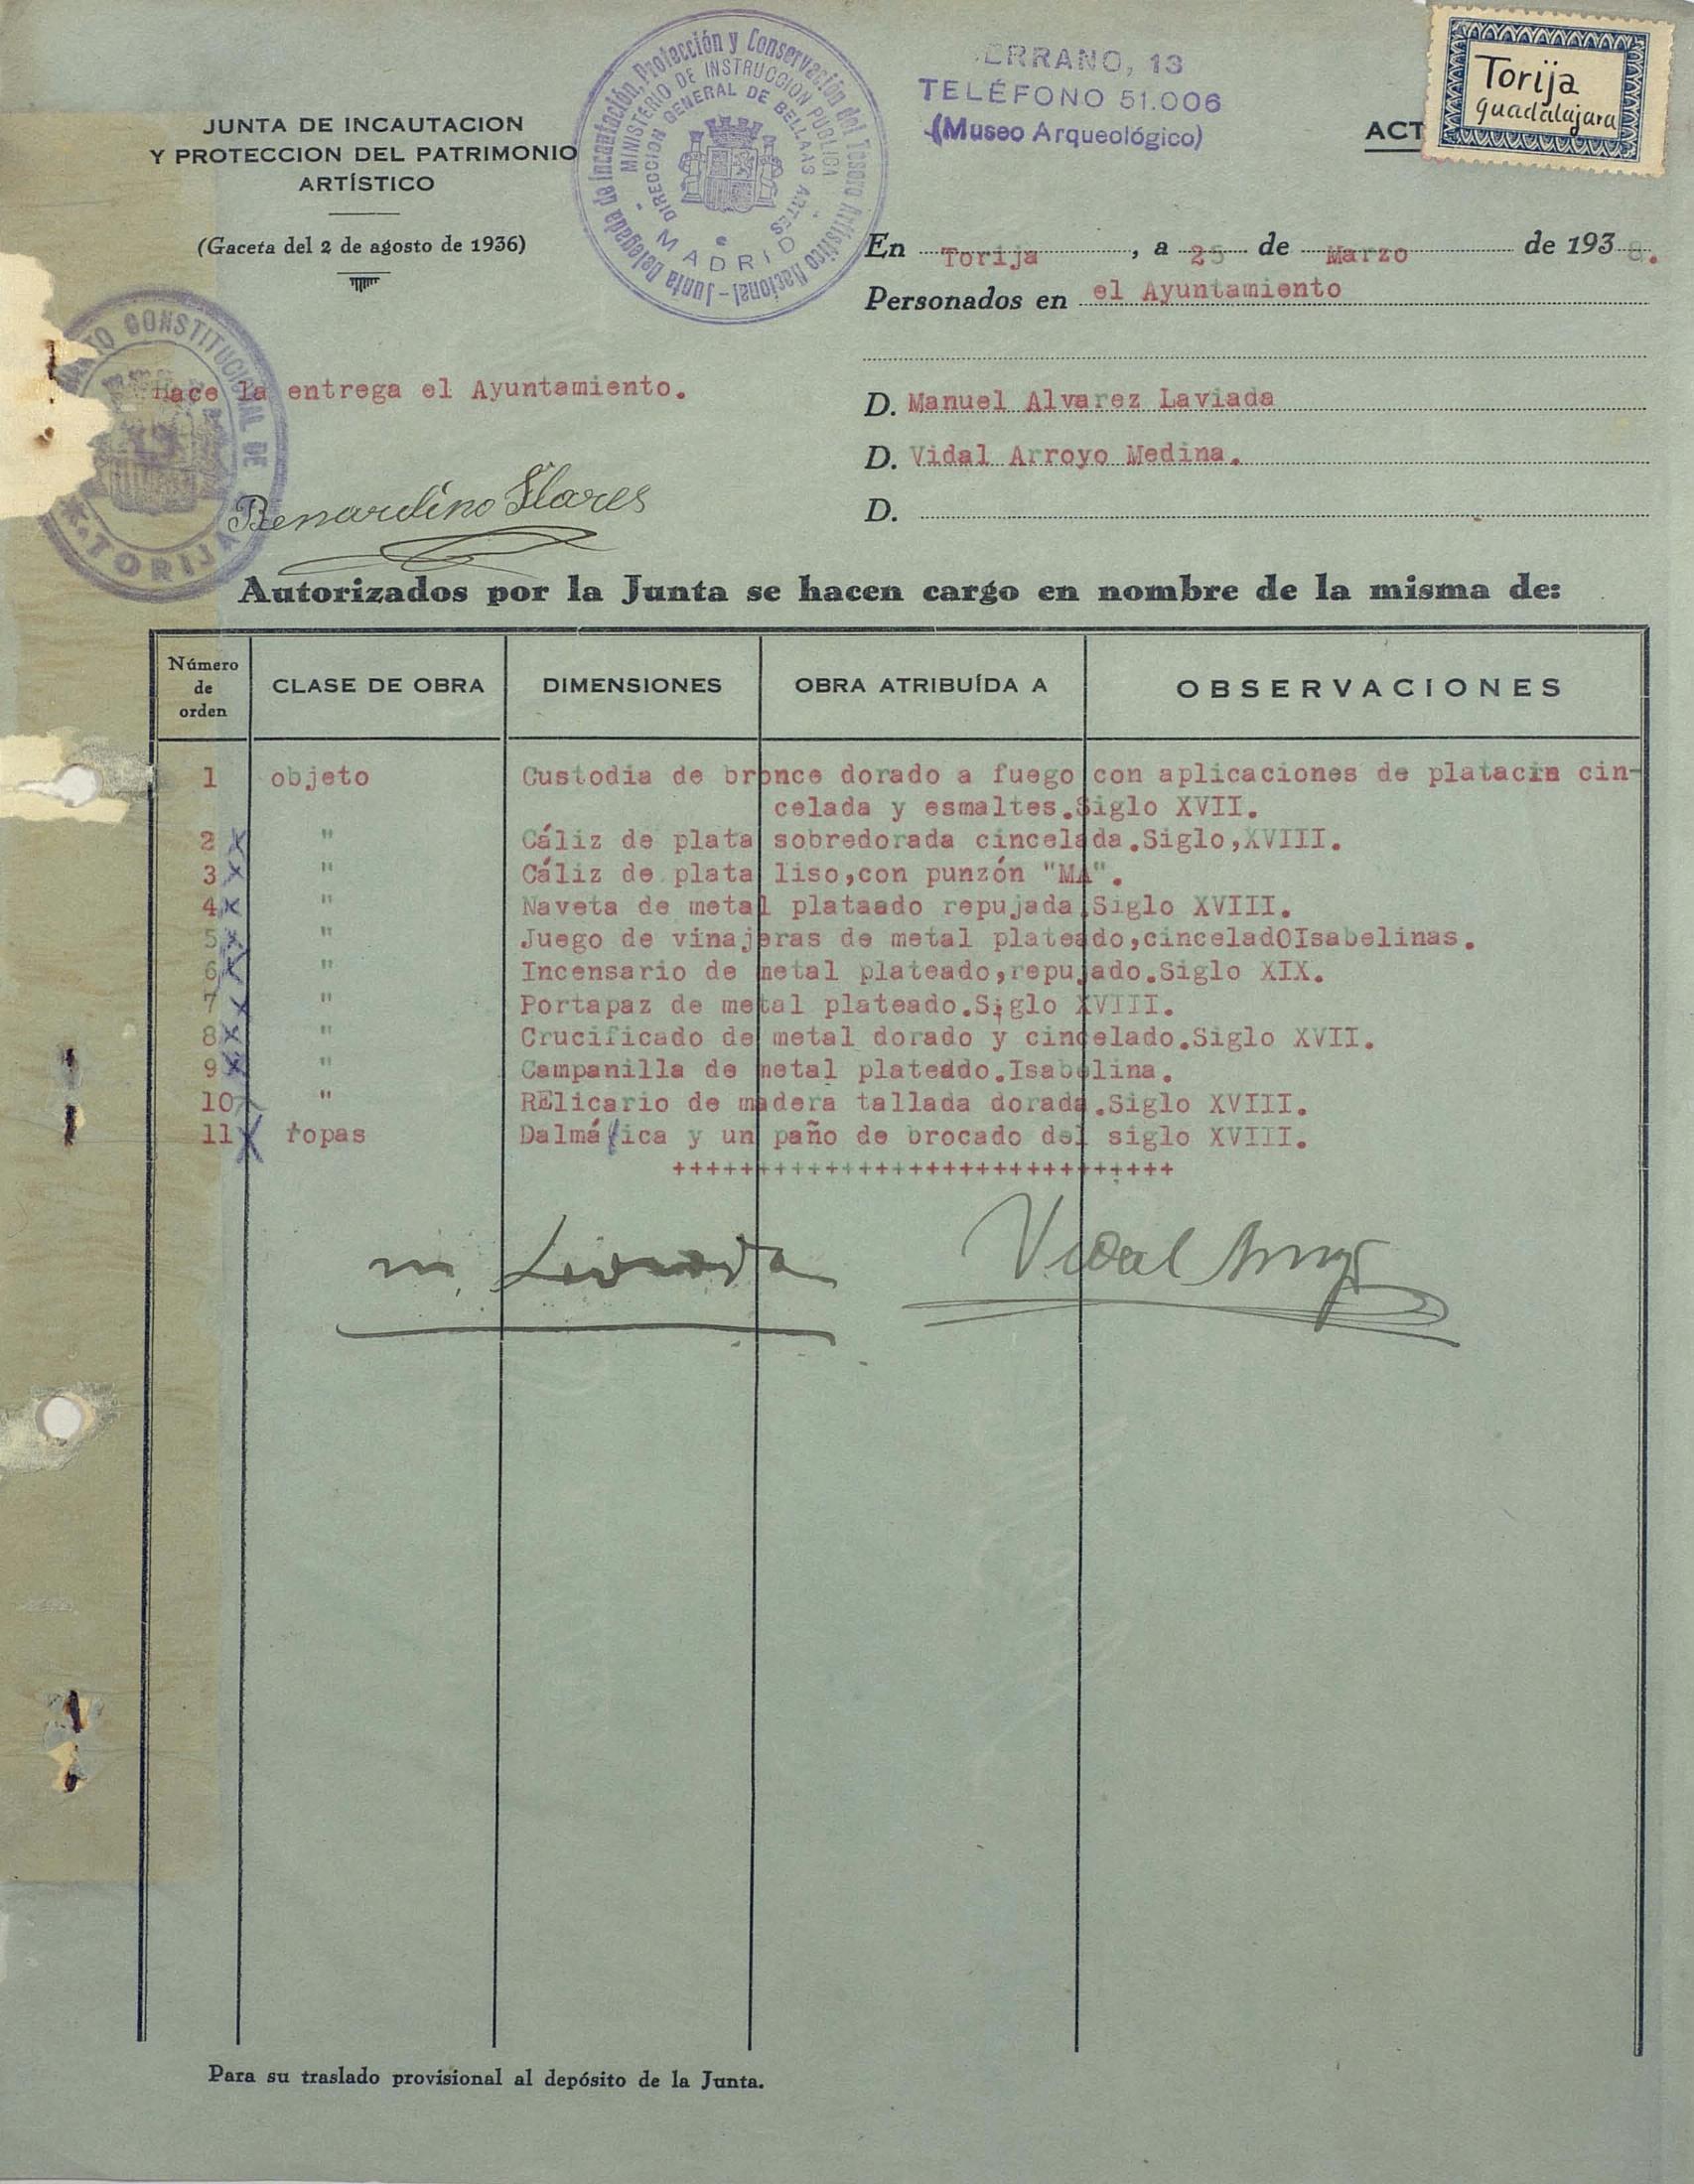 JUNTA DE INCAUTACION
Y PROTECCION DEL PATRIMONIO
ARTÍSTICO
(Gaceta del 2 de agosto de 1936)
Junta Delegada de Incautación, Protección y Conservación del Tesoro Artístico Nacional
MINISTERIO DE INSTRUCCION PUBLICA
DIRECCION GENERAL DE BELLAS ARTES
MADRID
ERRANO, 13
TELÉFONO 51.006
(Museo Arqueológico)
ACT
Torija
Guadalajara
En Torija, a 25 de Marzo de 1938.
Personados en el Ayuntamiento
D. Manuel Alvarez Laviada
D. Vidal Arroyo Medina.
D.
CONSTITUCIONAL DE
TORIJA
Hace la entrega el Ayuntamiento.
Bernardino Flares
Autorizados por la Junta se hacen cargo en nombre de la misma de:
Número de orden CLASE DE OBRA DIMENSIONES OBRA ATRIBUÍDA A OBSERVACIONES
1 objeto Custodia de bronce dorado a fuego con aplicaciones de platacin cin-
celada y esmaltes.Siglo XVII.
2 x " Cáliz de plata sobredorada cincelada.Siglo,XVIII.
3 x " Cáliz de plata liso,con punzón "MA".
4 x " Naveta de metal plataado repujada.Siglo XVIII.
5 x " Juego de vinajeras de metal plateado,cinceladOIsabelinas.
6 x " Incensario de metal plateado,repujado.Siglo XIX.
7 x " Portapaz de metal plateado.Siglo XVIII.
8 x " Crucificado de metal dorado y cincelado.Siglo XVII.
9 x " Campanilla de metal plateado.Isabelina.
10 " RElicario de madera tallada dorada.Siglo XVIII.
11 x ropas Dalmática y un paño de brocado del siglo XVIII.
++++++++++++++++++++++++++++++
m. Laviada Vidal Arroyo
Para su traslado provisional al depósito de la Junta.